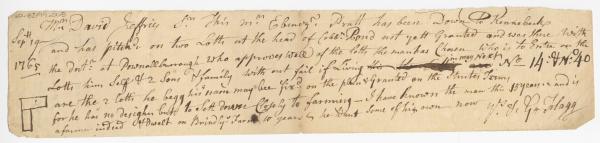 Mr David Jeffries Sr. This Mr Ebenezr Pratt has been Down to Kennebeck
Sepr 19
1765
and has pitch'd on two Lotts at the head of Cobbs: Pond not yett Granted and was there With
the Doctr at Pownallborough who approves well of the Lotts the man has Chosen who is to Enter on the
Lotts him Self & 2 Sons & family with out fail if Living may Next No 14. & No 40
are the 2 lotts he beggs his name may be fix'd on the plan & Granted on the Settlers Terms
for he has no designs but to Sett Down Closely to farming - I have known the man this 15 years & is
a farmer indeed & Dwelt on Brindlys Farm 10 years he Went Some of his own now yrs Gr Flagg